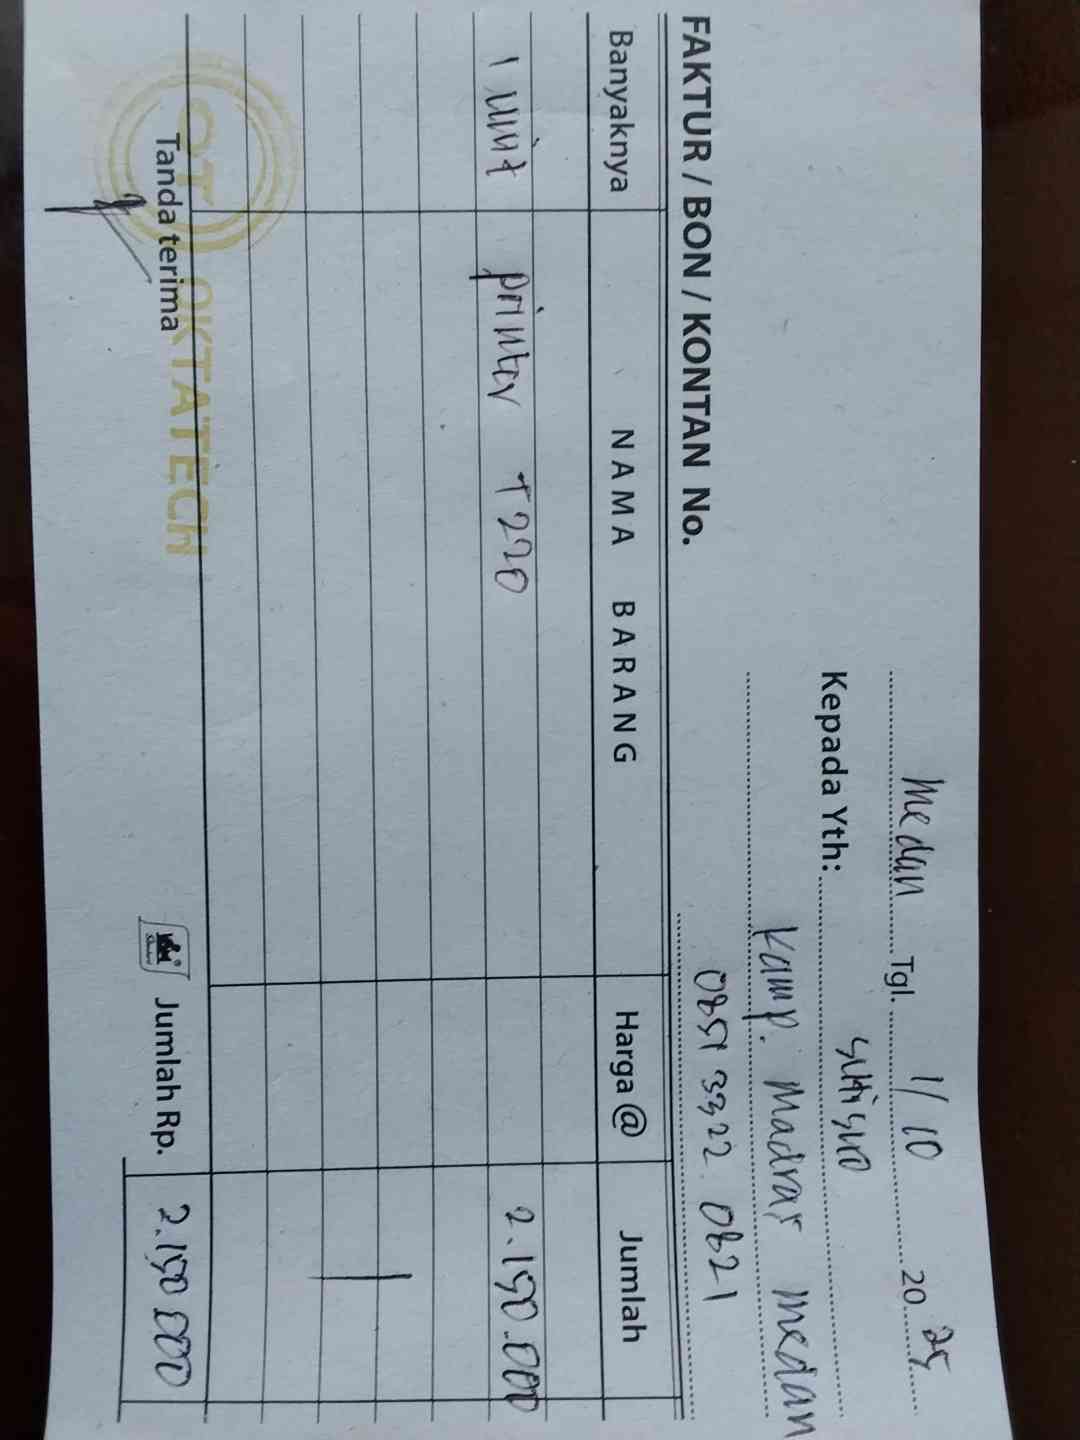 Medan Tgl. 1/10 20 25
Kepada Yth: Sutisno
Kamp. Madras Medan
0851 3322 0821
FAKTUR / BON / KONTAN No.
Banyaknya NAMA BARANG Harga @ Jumlah
1 unit printer T220 2.150.000
Tanda terima Jumlah Rp. 2.150 000
OT OKTATECH